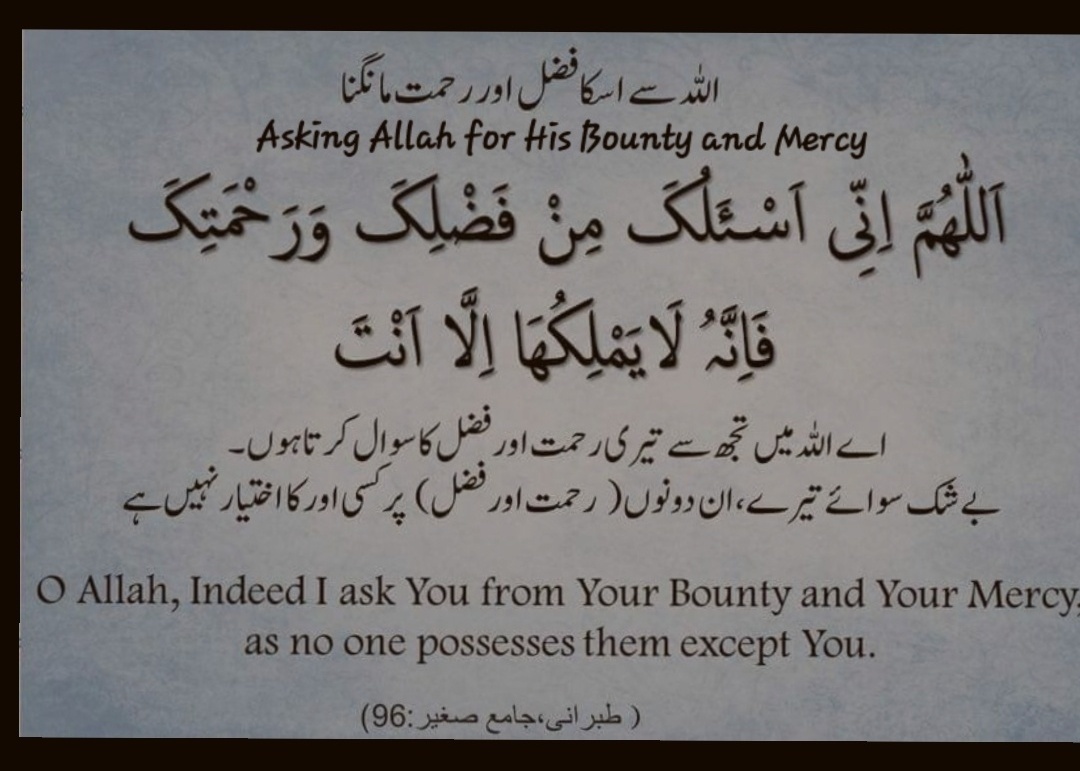 اللہ سے اسکا فضل اور رحمت مانگنا
Asking Allah for His Bounty and Mercy
اَللّٰھُمَّ اِنِّی اَسْئَلُکَ مِنْ فَضْلِکَ وَرَحْمَتِکَ
فَاِنَّہُ لَایَمْلِکُھَا اِلَّا اَنْتَ
اے اللہ میں تجھ سے تیری رحمت اور فضل کا سوال کرتا ہوں۔
بے شک سوائے تیرے، ان دونوں( رحمت اور فضل) پر کسی اور کا اختیار نہیں ہے
O Allah, Indeed I ask You from Your Bounty and Your Mercy,
as no one possesses them except You.
( طبرانی،جامع صغیر:96)